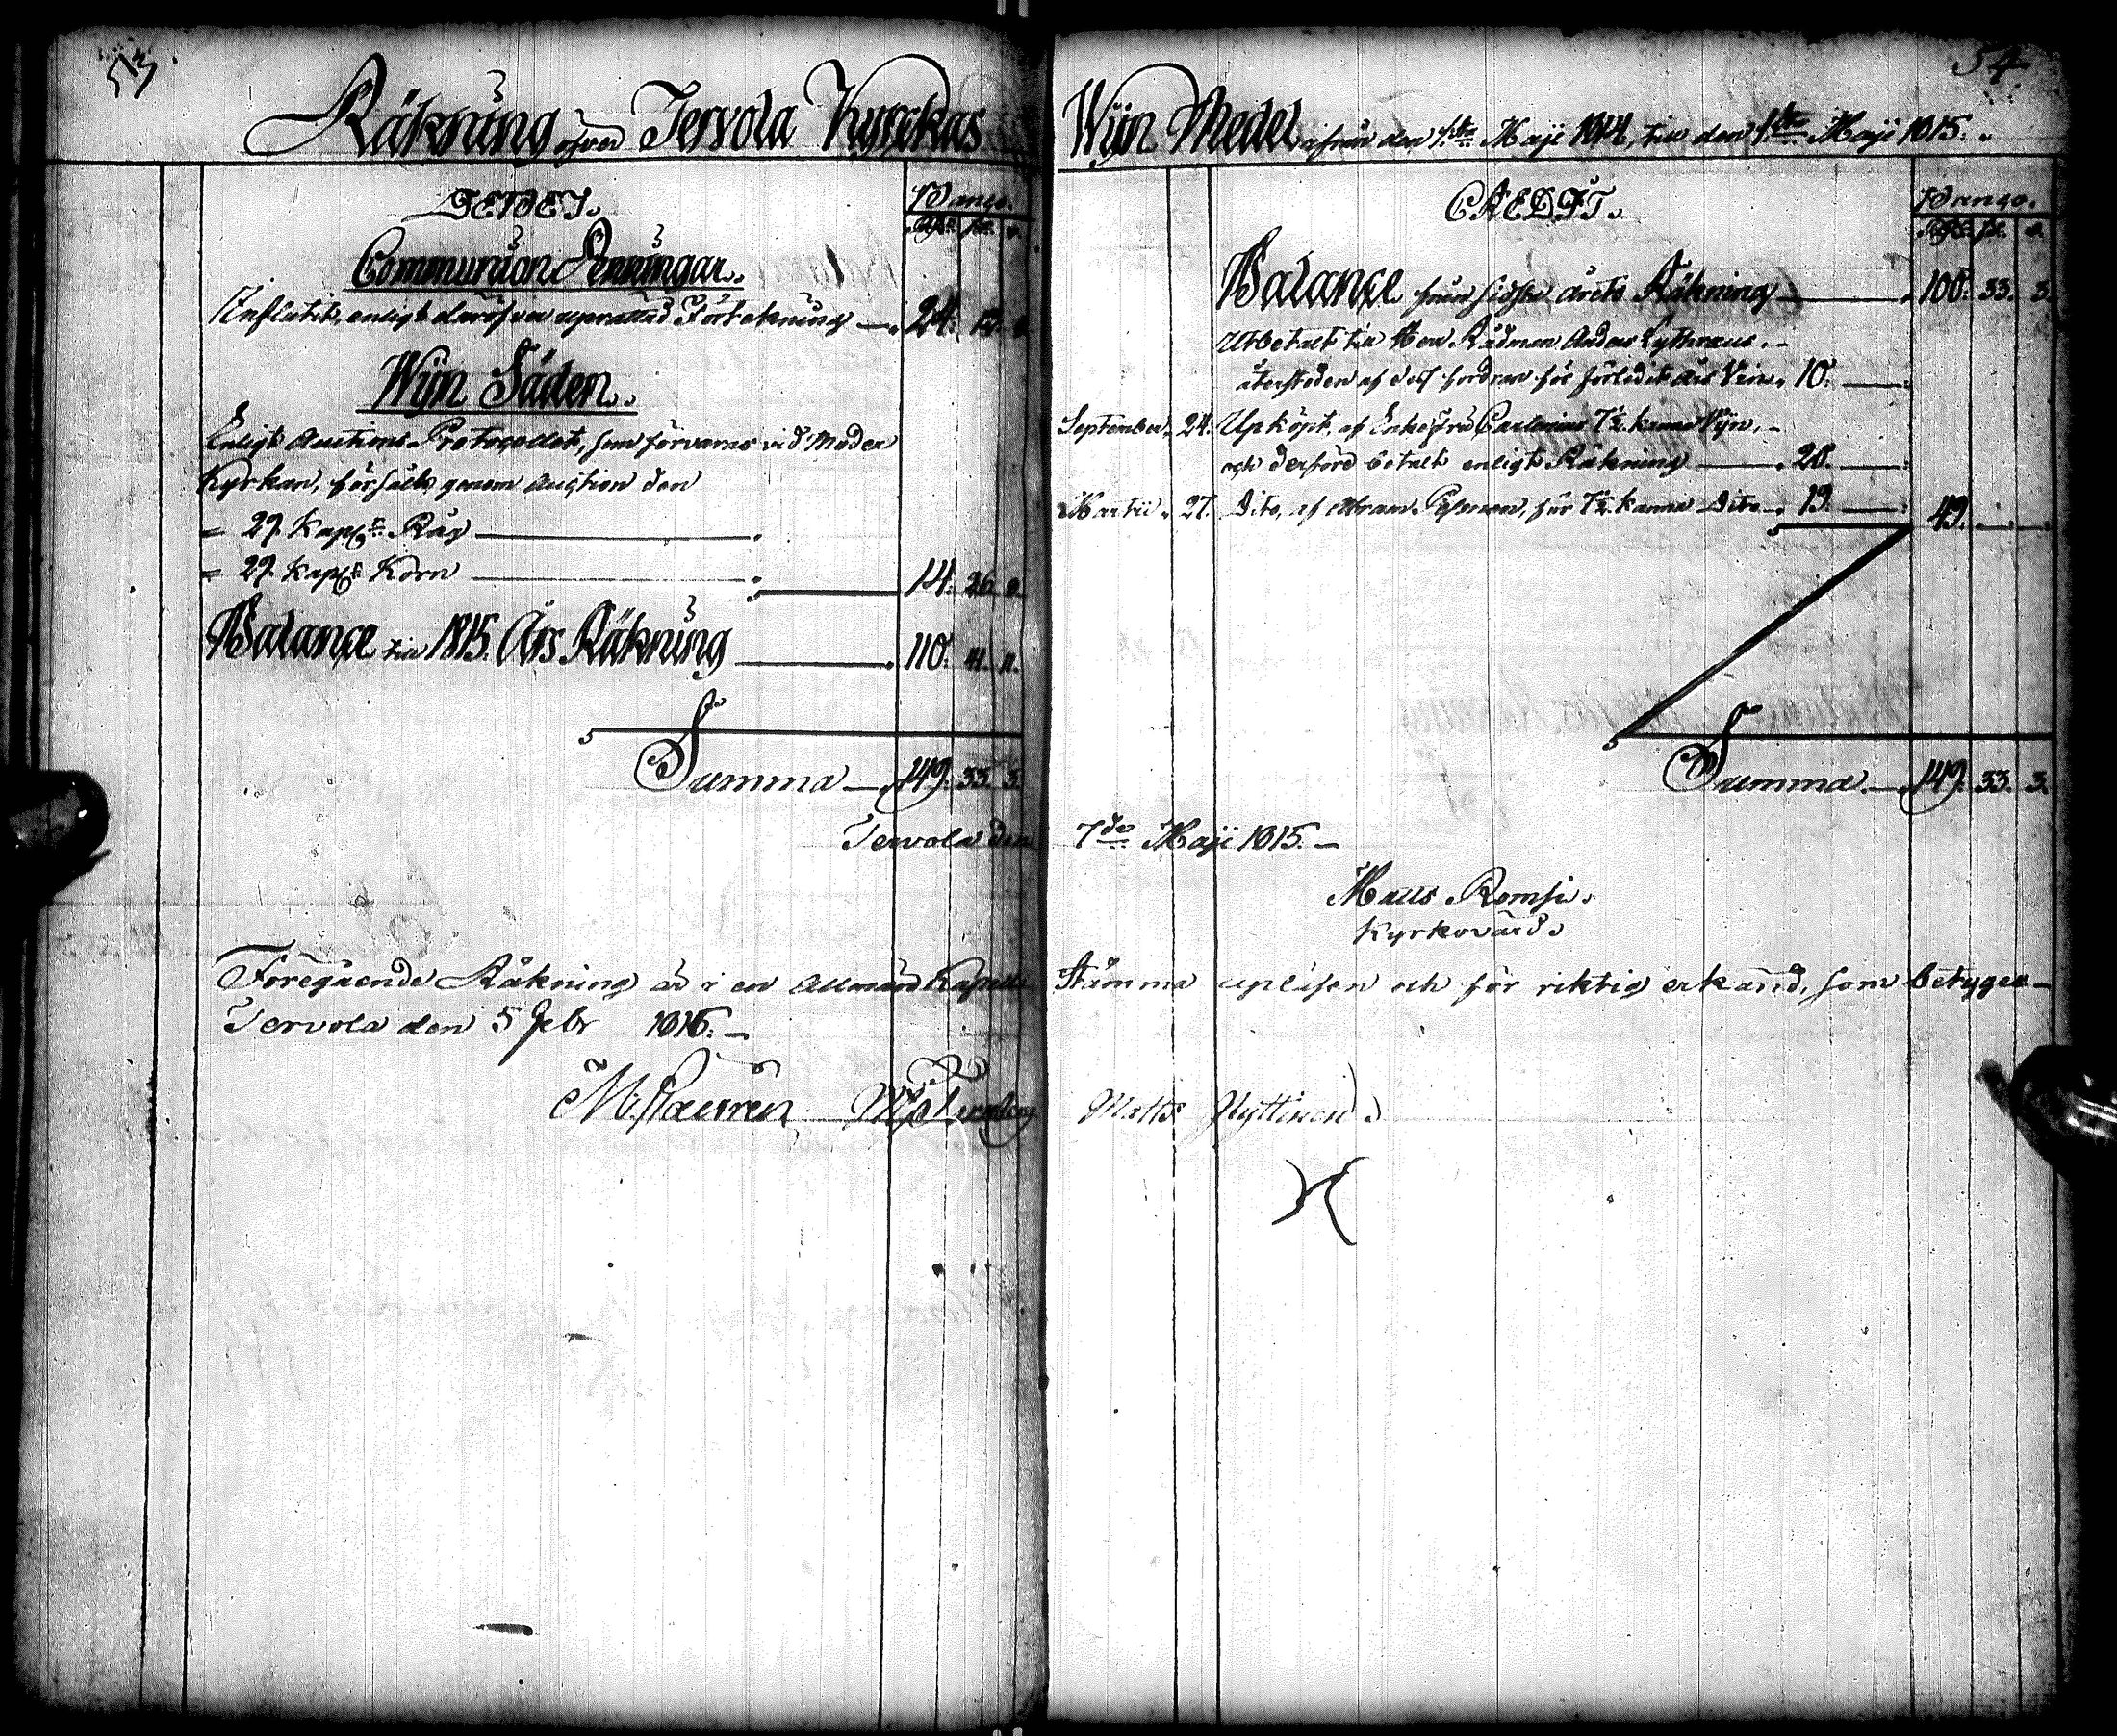 53
Räkning öfver Tervola Kyrckas
DEBET.
Banco.
Communion Penningar.
Influtit, enligt deröfver uprättad Förtekning — 24.
Wijn Säden.
Enligt Auctions Protocollet, som förvaras vid Moder
Kyrkan, försålts genom Auction den
= 29. Kapr Råg
= 29. Kapr Korn 14. 26
Balance till 1815. Års Räkning 110. 41. 11.
Summa — 149. 33. 3.
Tervola den
Föregående Räkning är i en Allmän Kapells
Tervola den 5 Febr 1816. —
54
Wijn Medel ifrån den 1sta Maji 1814, till den 1sta Maji 1815.
CREDIT.
Banco.
Balance från sidsta årets Räkning 100. 33. 3.
Utbetalt till Herr Rådman Anders Lythræus
återstoden af dess fordran för förledit års Vin 10.
September 24. Upköpt, af Enkefru 7½ kanna Wijn,
och derföre betalt enligt Räkning 20.
Martii 27. Dito, af för 7½ kanna Dito 19. 49.
Summa — 149. 33. 3.
7de Maji 1815. —
Matts Romsi.
Kyrkovärd.
Stämma upläsen och för riktig erkänd, som betygar —
Matts Hyttinen.